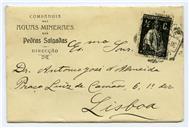 COMPANHIA
DAS
AGUAS MINERAES
DE
Pedras Salgadas
DIRECÇÃO
Exmo Snr.
Dr. Antonio José d'Almeida
Praça Luiz de Camões, 6, 1º
Lisboa